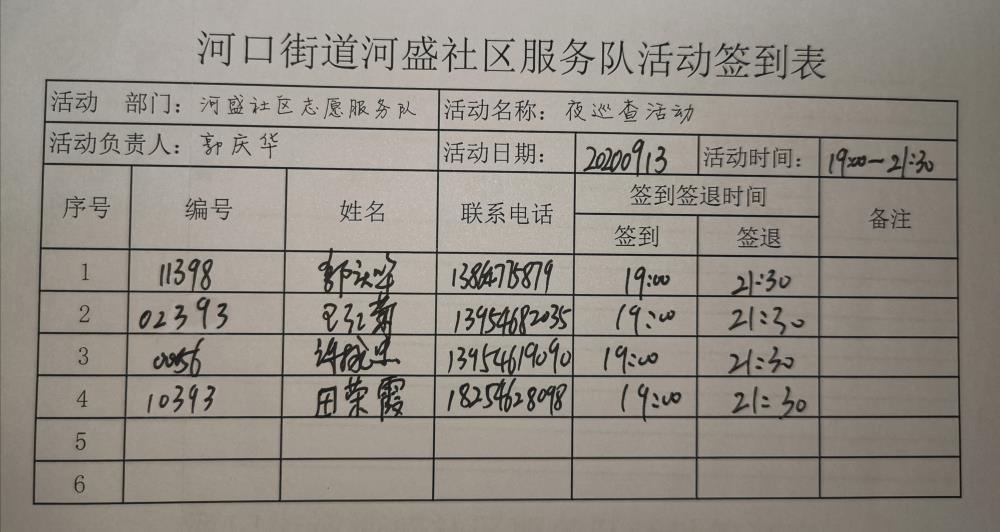 河口街道河盛社区服务队活动签到表
活动 部门：河盛社区志愿服务队 活动名称：夜巡查活动
活动负责人：郭庆华 活动日期：20200913 活动时间：19:00-21:30
序号 编号 姓名 联系电话 签到签退时间 备注
签到 签退
1 11398 郭庆华 13864775879 19:00 21:30
2 02393 13954682035 19:00 21:30
3 0056 13954619090 19:00 21:30
4 10393 田荣霞 18254628098 19:00 21:30
5
6